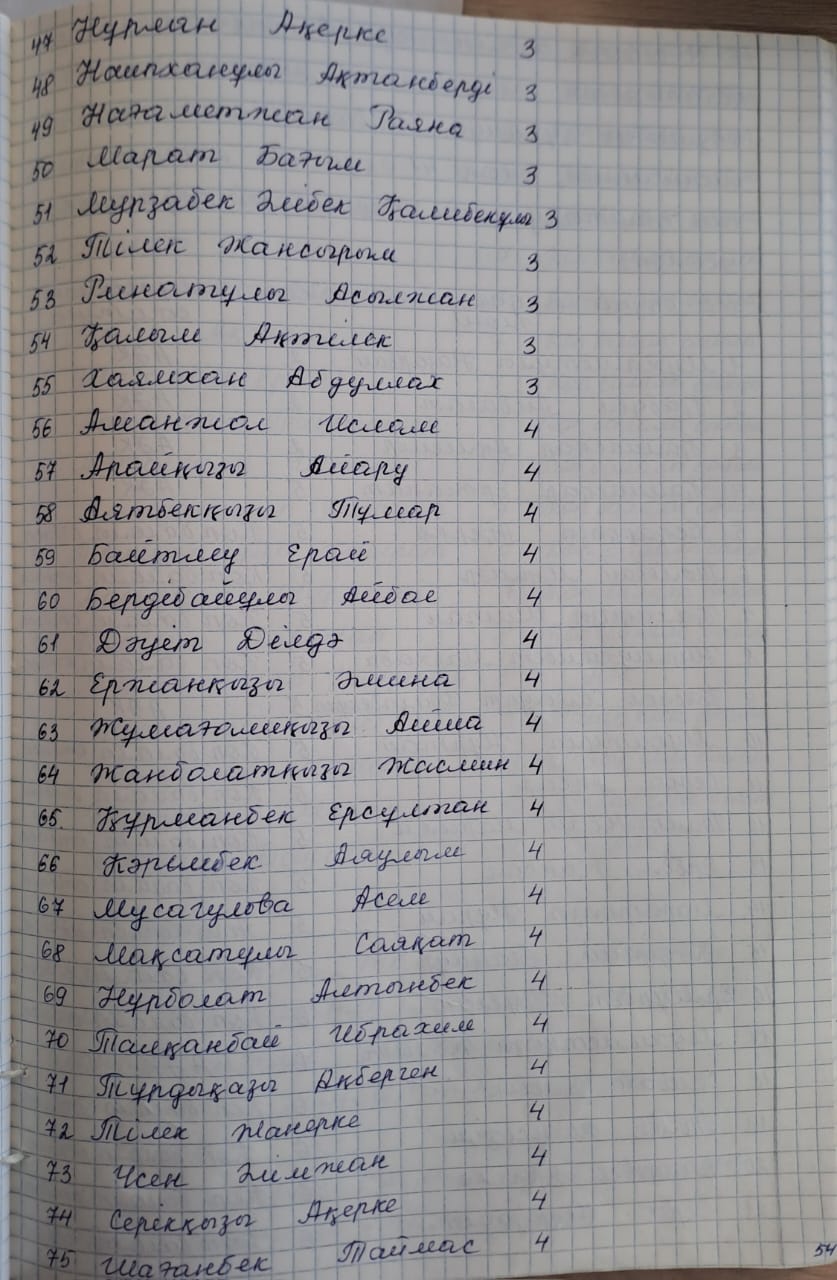 47 Нұрлан Ақерке 3
48 Наипханұлы Ақтанберді 3
49 Нағаметжан Раяна 3
50 Марат Бағым 3
51 Мурзабек Әлібек Қалибекұлы 3
52 Тілек Жансырым 3
53 Ринатұлы Асылжан 3
54 Қалым Ақтілек 3
55 Хаямхан Абдуллах 3
56 Аманжол Ислам 4
57 Арайқызы Айару 4
58 Аятбекқызы Тұмар 4
59 Байтлеу Ерай 4
60 Бердібайұлы Айбас 4
61 Дәуіт Ділдә 4
62 Ержанқызы Әмина 4
63 Жұмағалиқызы Айша 4
64 Жанболатқызы Жасмин 4
65. Құрманбек Ерсұлтан 4
66 Кәрімбек Аяулым 4
67 Мусагулова Асем 4
68 Мақсатұлы Саяқат 4
69 Нұрболат Алтынбек 4
70 Талқанбай Ибрахим 4
71 Тұрдықазы Ақберген 4
72 Тілек Жанерке 4
73 Үсен Әлімжан 4
74 Серікқызы Ақерке 4
75 Шағанбек Таймас 4
54